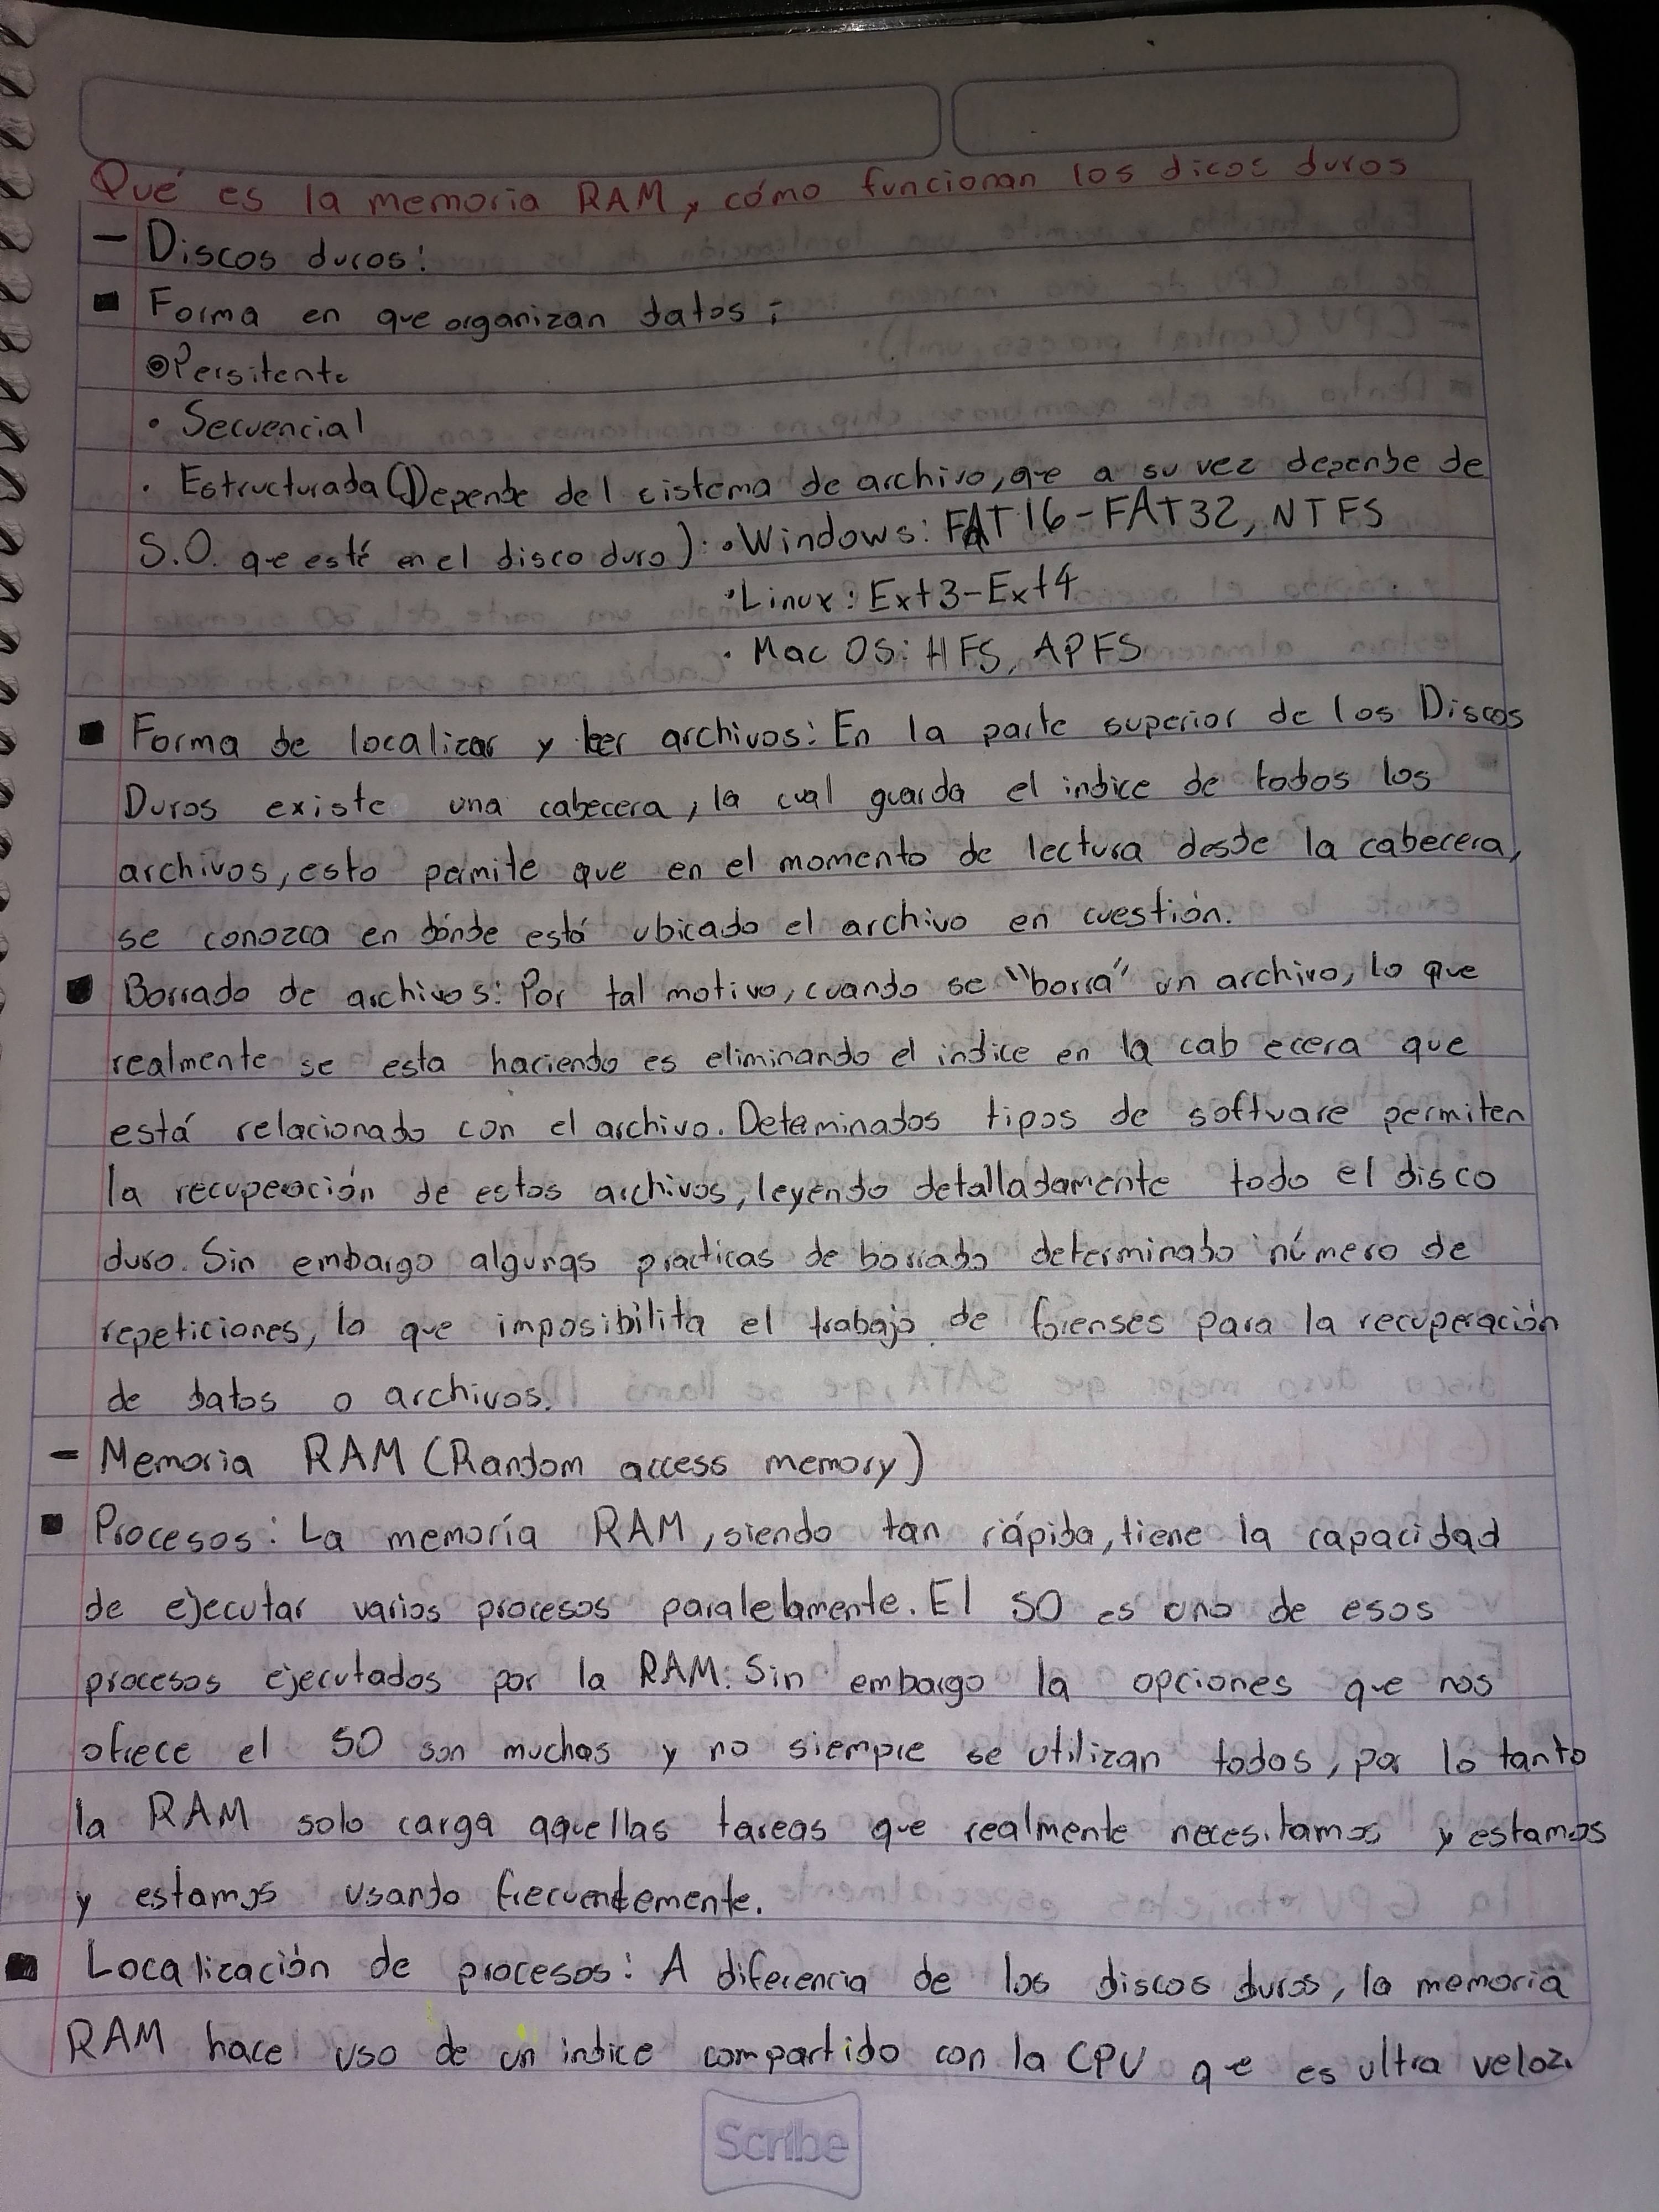 Qué es la memoria RAM y cómo funcionan los dicos duros
- Discos duros:
■ Forma en que organizan datos:
Persitente
• Secuencial
• Estructurada (Depende del sistema de archivo, que a su vez depende de
S.O. que esté en el disco duro): • Windows: FAT16-FAT32, NTFS
• Linux: Ext3-Ext4
• Mac OS: HFS, APFS
■ Forma de localizar y leer archivos: En la parte superior de los Discos
Duros existe una cabecera, la cual guarda el indice de todos los
archivos, esto permite que en el momento de lectura desde la cabecera,
se conozca en dónde está ubicado el archivo en cuestión.
■ Borrado de archivos: Por tal motivo, cuando se "borra" un archivo, lo que
realmente se esta haciendo es eliminando el indice en la cab ecera que
está relacionado con el archivo. Determinados tipos de software permiten
la recuperación de estos archivos, leyendo detalladamente todo el disco
duro. Sin embargo algunas practicas de borrado determinado número de
repeticiones, lo que imposibilita el trabajo de forenses para la recuperación
de datos o archivos.
- Memoria RAM (Random access memory)
■ Procesos: La memoría RAM, siendo tan rápida, tiene la capacidad
de ejecutar varios procesos paralelamente. El SO es uno de esos
procesos ejecutados por la RAM. Sin embargo la opciones que nos
ofrece el SO son muchas y no siempre se utilizan todos, por lo tanto
la RAM solo carga aquellas tareas que realmente necesitamos y estamos
y estamos usando frecuentemente.
■ Localización de procesos: A diferencia de los discos duros, la memoria
RAM hace uso de un indice compartido con la CPU que es ultra veloz.
Scribe